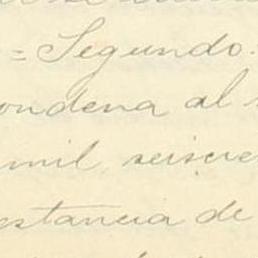 = Segundo.
ondena al
mil, seiscie
stancia de